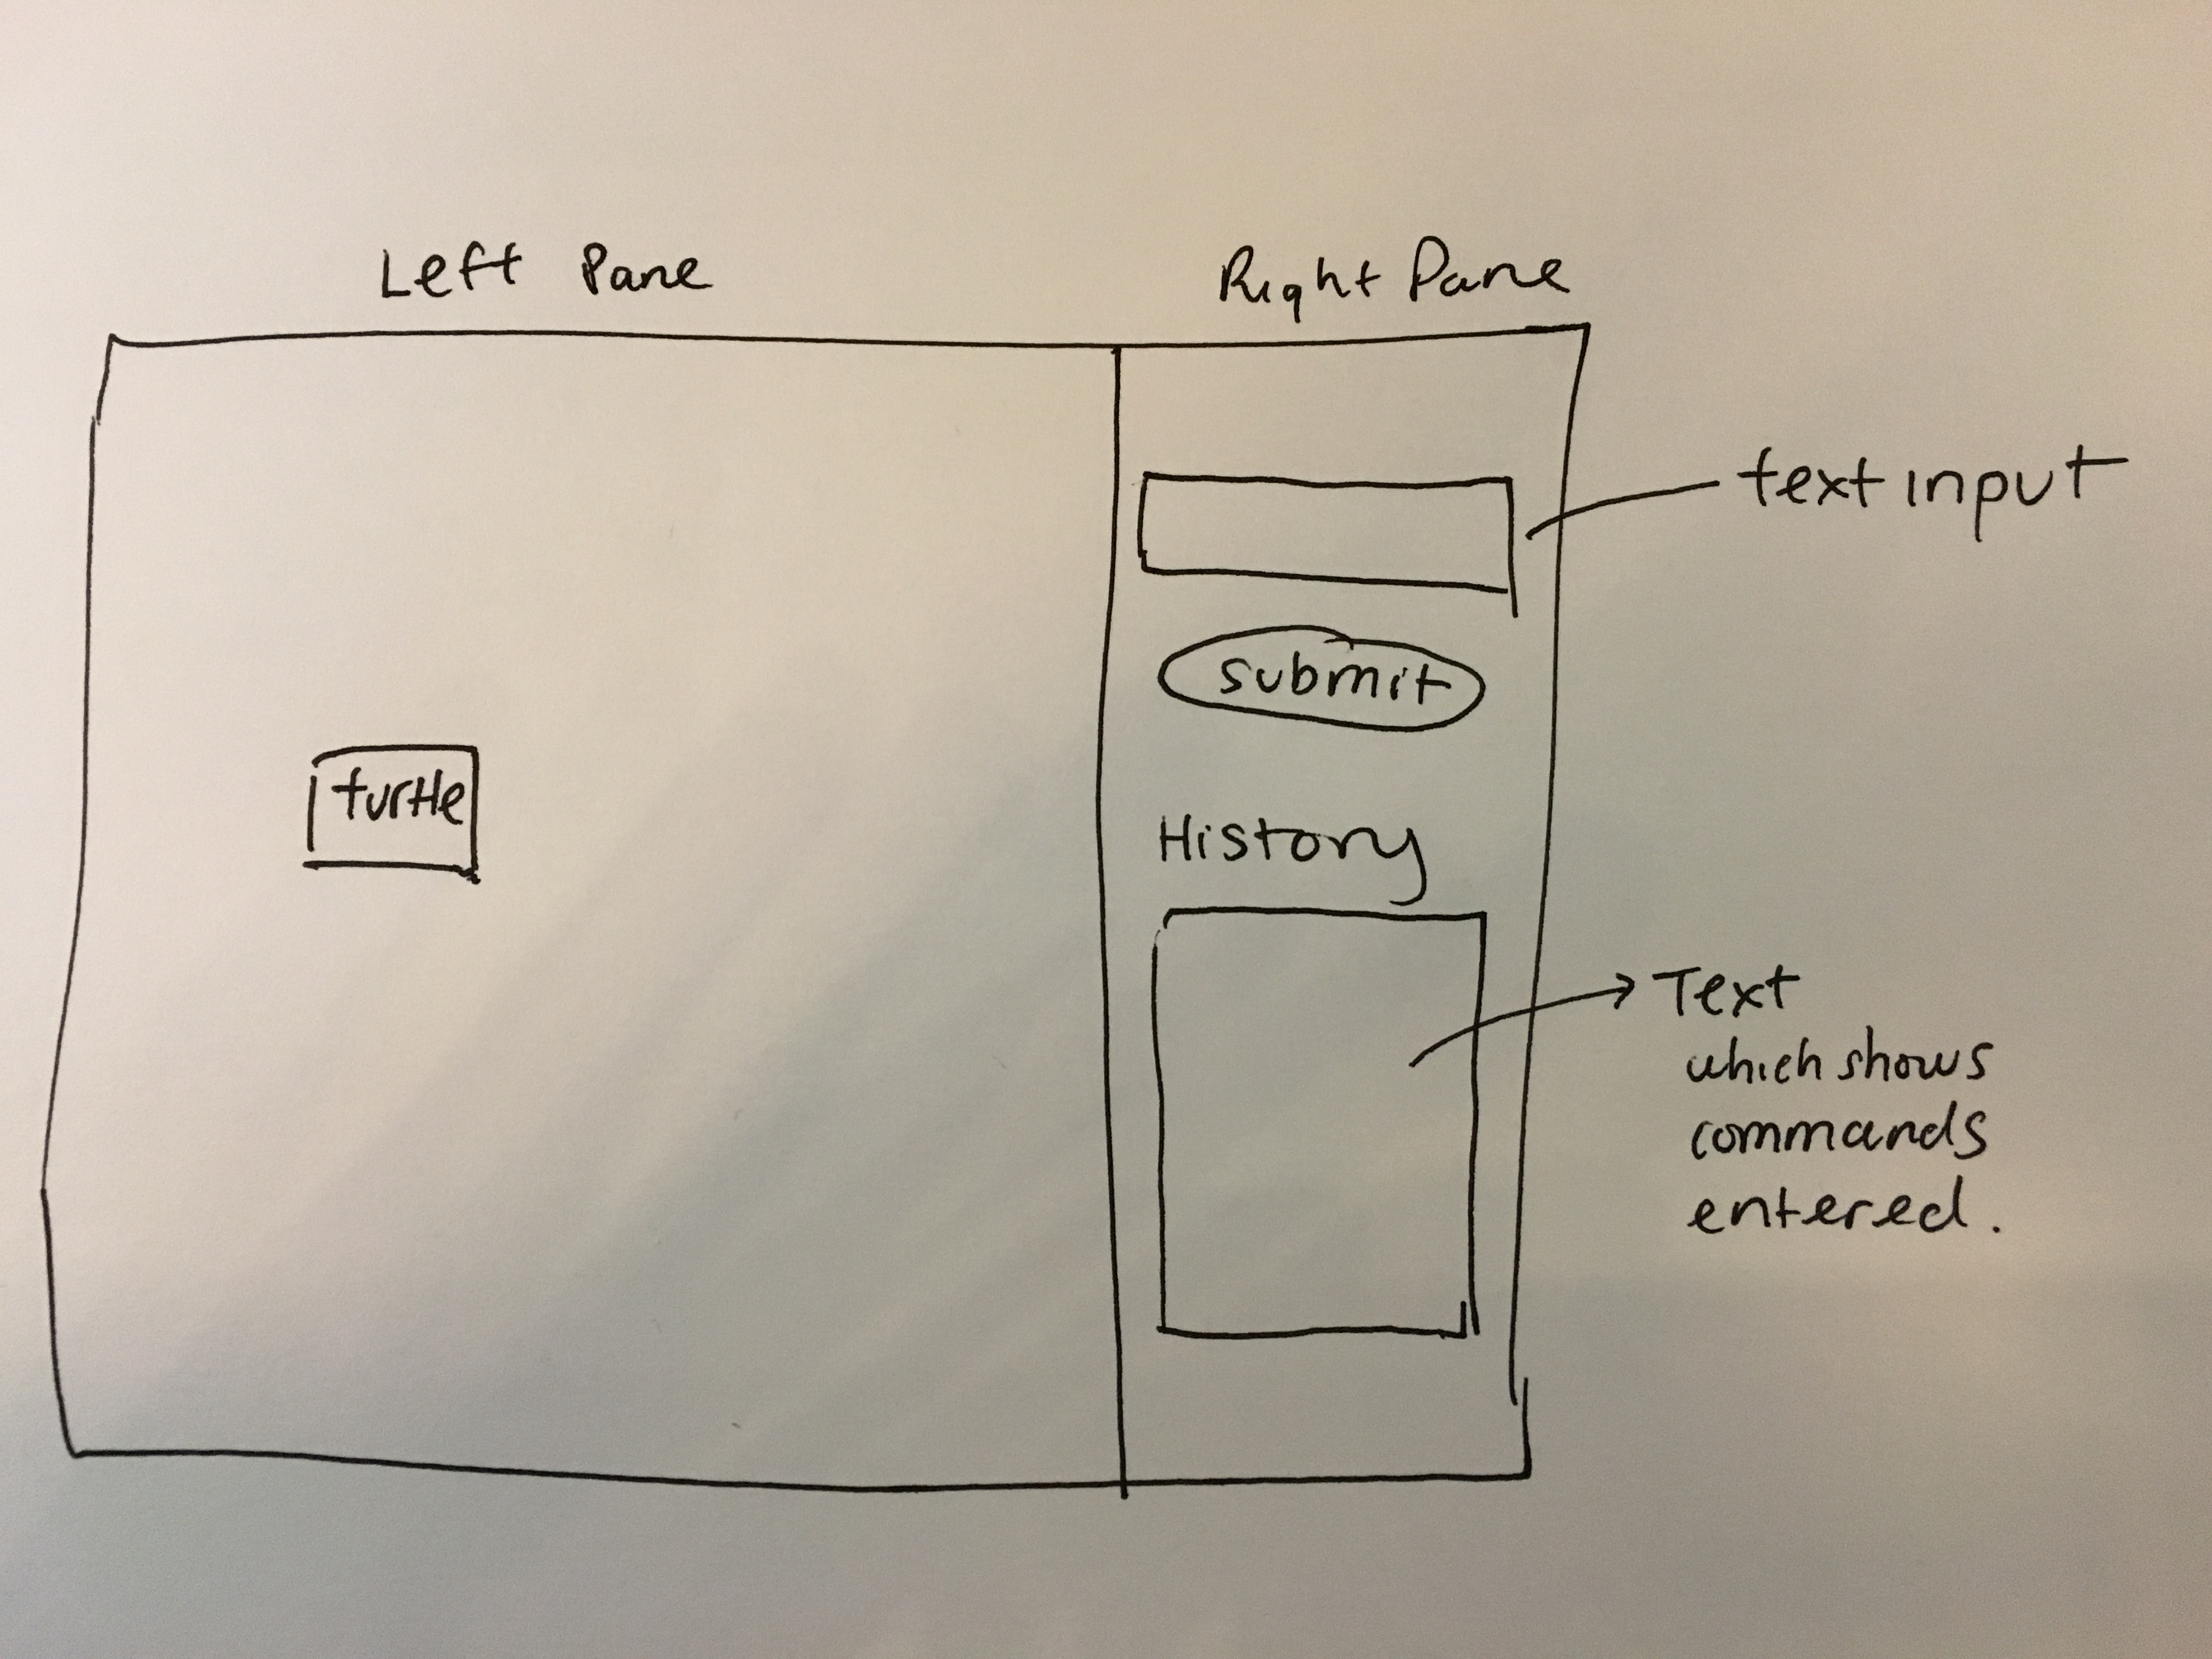 Left Pane
Right Pane
text input
submit
turtle
History
Text
which shows
commands
entered.